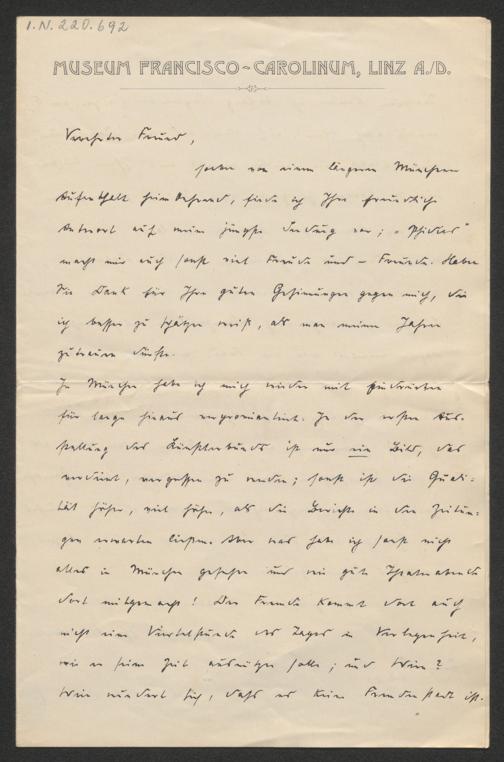 I.N. 220.692
MUSEUM FRANCISCO-CAROLINUM, LINZ A./D.
Verehrter Freund,
soeben von einem längeren Münchner
Aufenthalt heimkehrend, finde ich Ihre freundliche
Antwort auf meine jüngste Sendung vor; „Phidias"
macht mir auch sonst viel Freude und – Freunde. Haben
Sie Dank für Ihre guten Gesinnungen gegen mich, die
ich besser zu schätzen weiß, als man meinen Jahren
zutrauen dürfte.
In München habe ich mich wieder mit Eindrücken
für lange hinaus verproviantiert. In der ersten Aus-
stellung des Künstlerbunds ist nur ein Bild, das
verdient, vergessen zu werden; sonst ist die Quali-
tät höher, viel höher, als die Berichte in den Zeitun-
gen erwarten ließen. Aber was habe ich sonst nicht
alles in München gesehen und wie gute Theaterabende
dort mitgemacht! Der Fremde kommt dort auch
nicht eine Viertelstunde des Tages in Verlegenheit,
wie er seine Zeit ausnützen solle; und Wien?
Wien wundert sich, daß es keine Fremdenstadt ist.